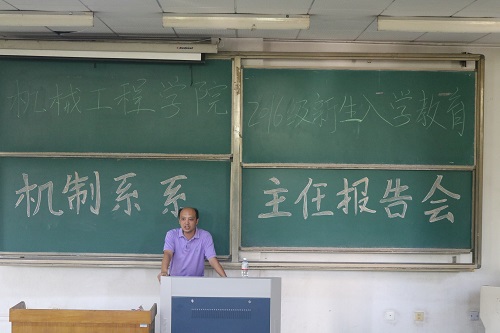 机械工程学院 2016级新生入学教育
机制系系 主任报告会